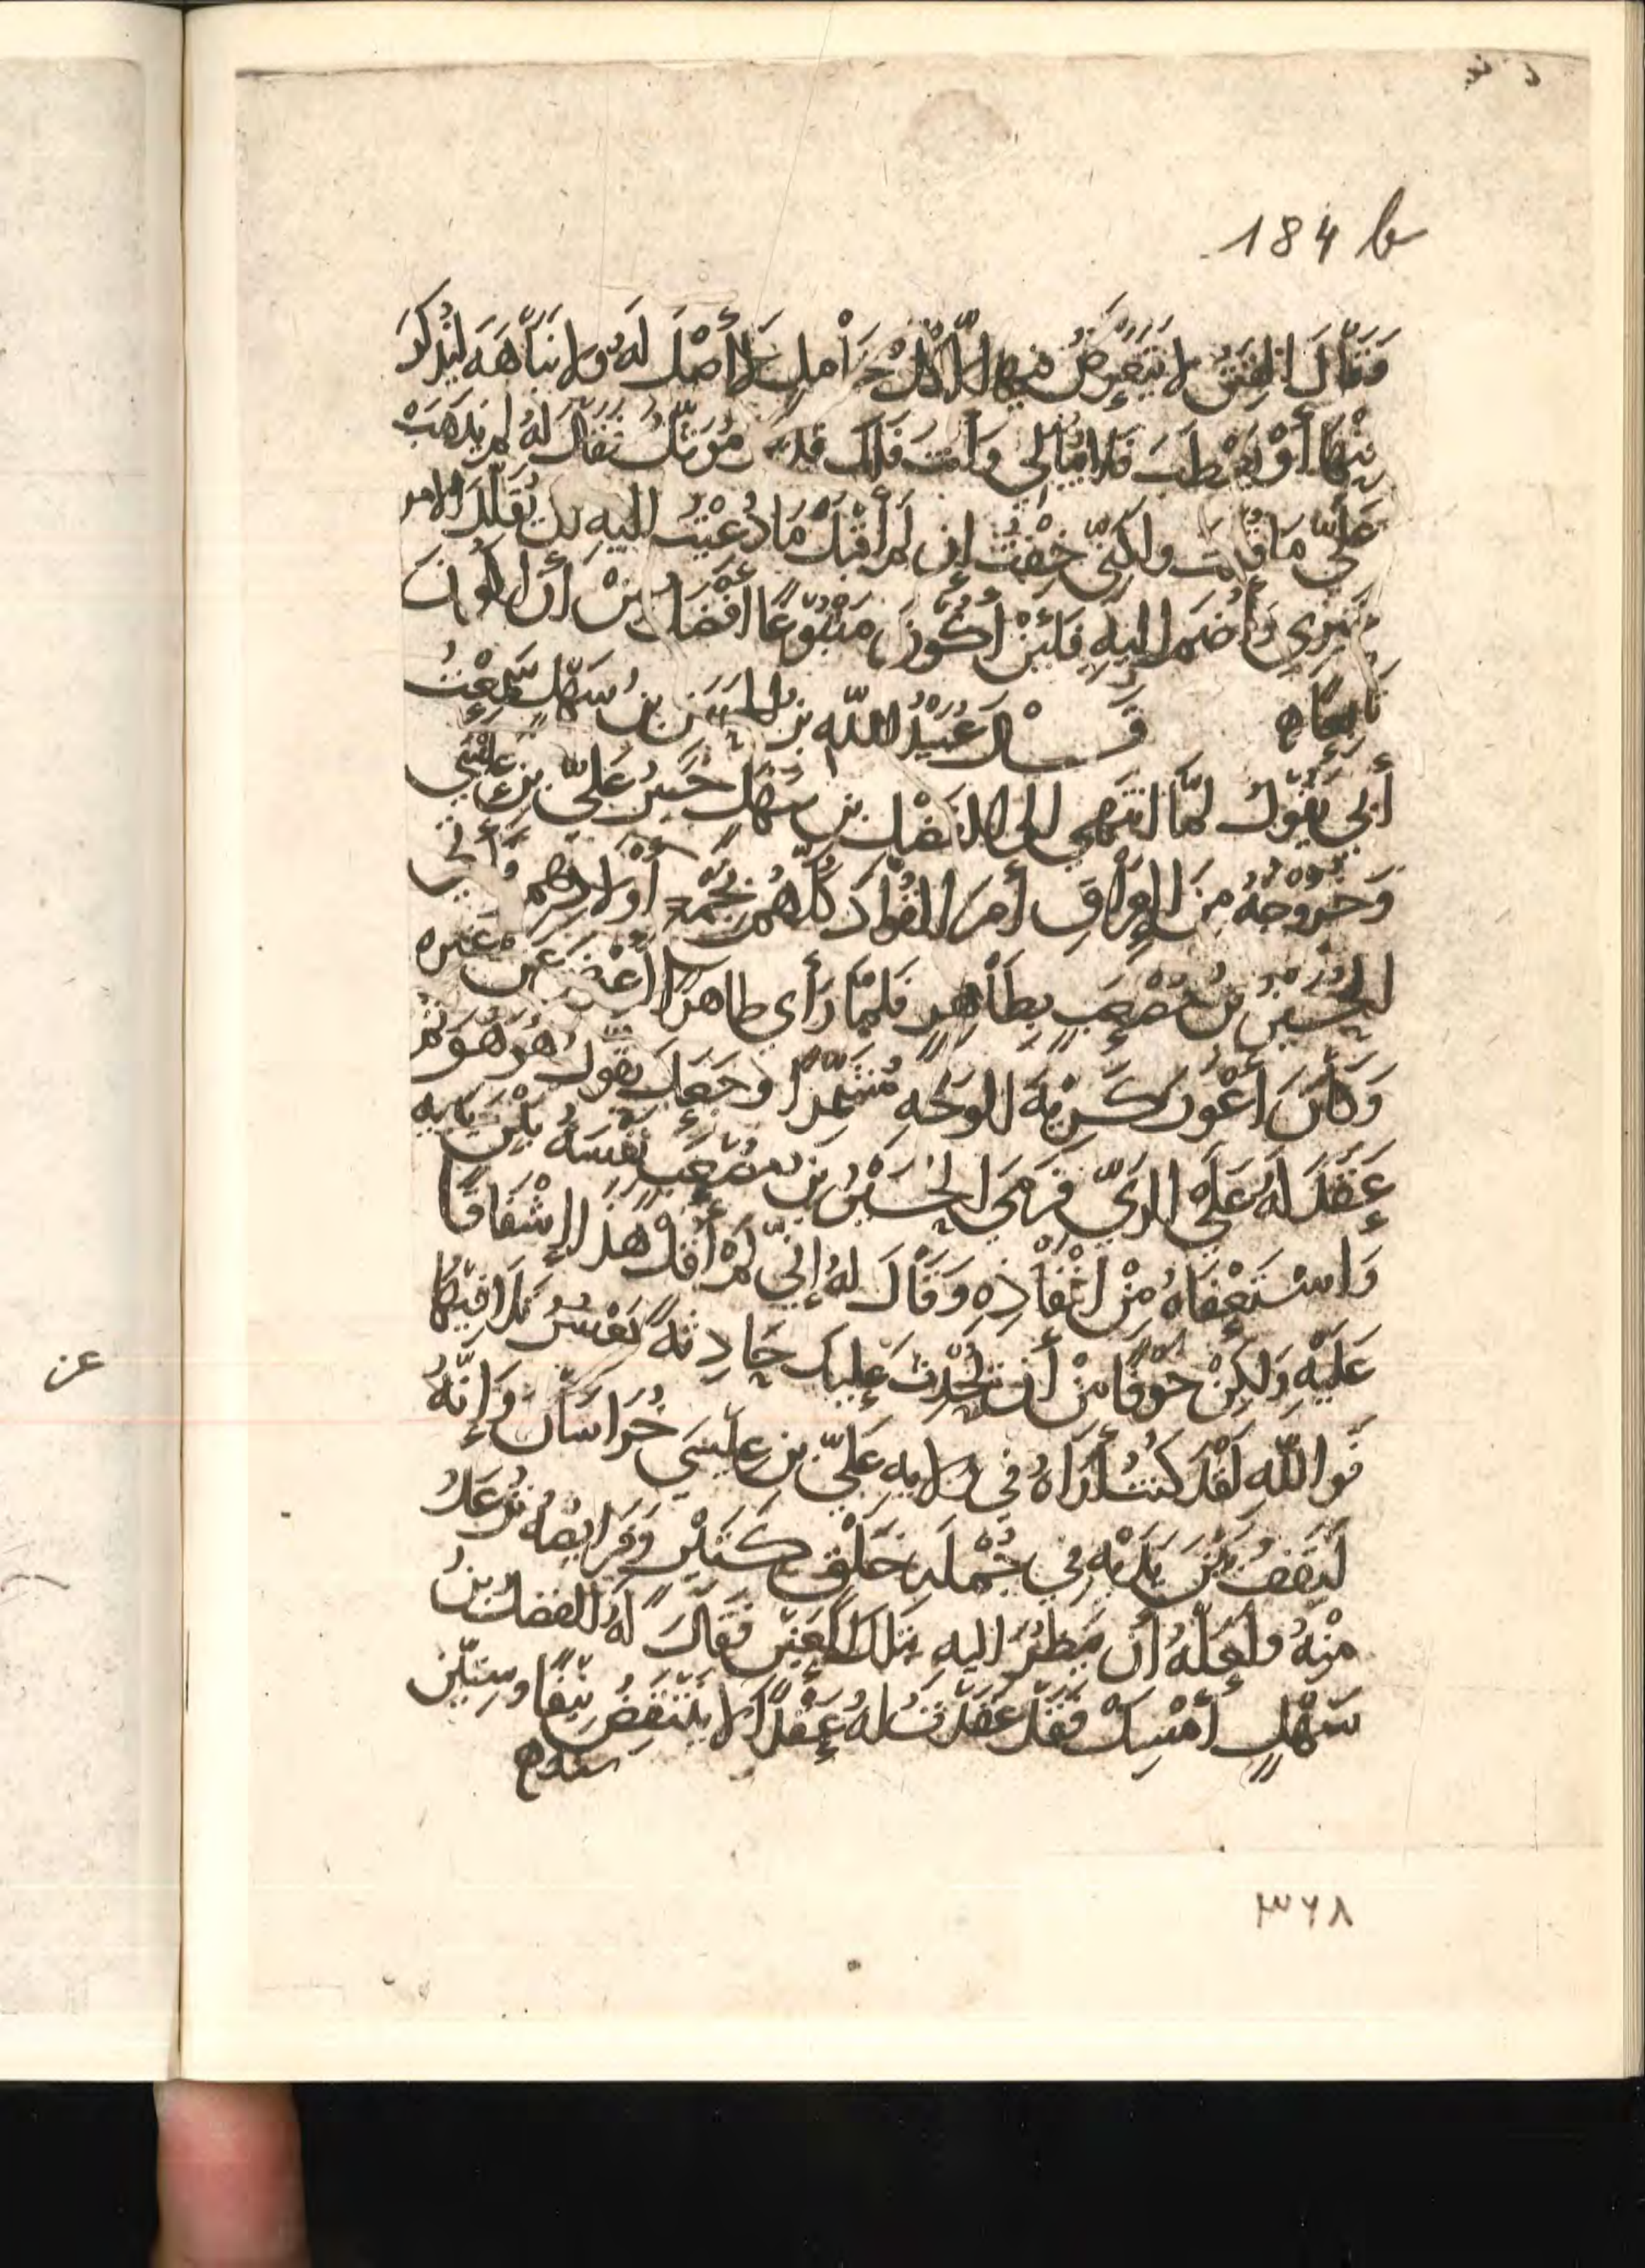 184 b
وَقَالَ الفِتَنُ لا يَتَعَرَّضُ فيها إلّا كلُّ خَامِلٍ لا أَصْلَ لَهُ ولا نَبَاهَةَ ليُذْكَرَ
أَوْ يَعْطَبَ فلا يُبَالي وَأَنْتَ فَلَكَ فقال له لم يذهب
عَلَيَّ مَا قُلتَ ولكِنّي خِفْتُ إن لم أَقْبَلْ مَا دُعِيْتُ إليه أن يُقَلَّدَ الامر
غَيْري وَأُضَمَّ إليهِ فَلَئِنْ أَكُونَ مَتْبُوعًا أَفْضَلُ مِنْ أن أكونَ
تَابِعًا ه قَالَ عُبَيْدُ اللّه بن الحَسَن بن سَهْل سَمِعْتُ
أبي يَقُولُ لمَّا انتَهى إلى الفَضْل بن سَهْل خَبَرُ عَليّ بن عِيْسَى
وَخُروجُهُ مِنَ العِرَاقِ أَمَرَ القُوّادَ كُلَّهُم أَوْلادهم وَأتى
الحُسَيْنُ بنُ مُصْعَبٍ بِطَاهِرٍ فلمّا رَأى طاهرًا أَعْرَضَ عَن غيره
وَكَانَ أَعْوَرَ كَرِيْهَ الوَجْهِ مُشَمِّرًا وَجَعَلَ يَقُولُ هُوَ هُوَ ثم
عَقَدَ لهُ عَلَى الريّ فَرَمَى الحُسَيْنُ بن مُصْعَبٍ نَفْسَهُ بَيْنَ يَدَيهِ
وَاسْتَعْفَاهُ مِنْ إنْفَاذِهِ وَقَالَ لهُ إنّي لَمْ أَقُلْ هذَا إشْفَاقًا
عَلَيْهِ وَلكِنْ خَوفًا مِنْ أن تَحْدُثَ عليكَ حَادِثَةٌ يَعْسُرُ تَلافِيهَا
فَواللّهِ لَقَدْ كنتُ أَرَاهُ في ولايه عَليّ بن عِيْسَى خُرَاسَانَ وَإنَّهُ
لَيَقِفُ بَيْنَ يَدَيْهِ في جُمْلَةِ خَلْقٍ كَثِيْرٍ وَفَرَايِصُهُ تُرْعَدُ
مِنْهُ ولَعَلَّهُ أن يَنظُرَ إليهِ بتلكَ العَيْنِ فَقَالَ لهُ الفضلُ بنُ
سَهْلٍ أَمْسِكْ فَقَدْ عَقَدْتُ لهُ عَقْدًا لا يَنْتَقِضُ نَيِّفًا وسِتّيْنَ
سنه ه
٣٦٨
عن